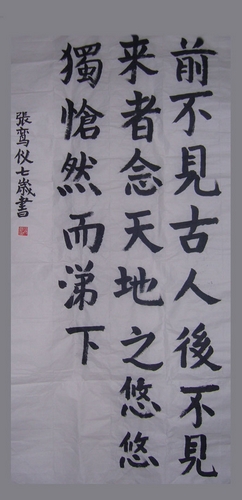 前不見古人後不見
来者念天地之悠悠
獨愴然而涕下
張鸾仪七歲書